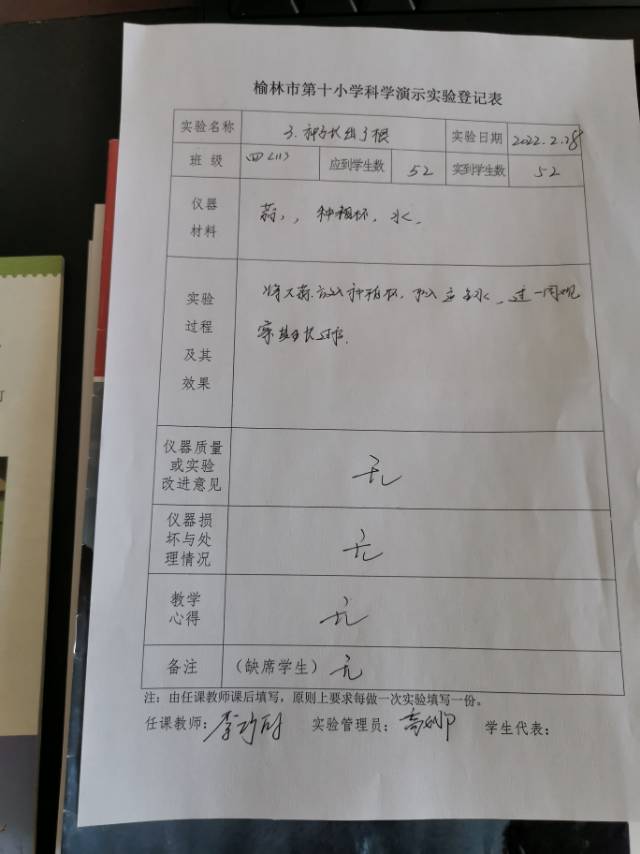 榆林市第十小学科学演示实验登记表
实验名称 3.种子长出了根 实验日期 2022.2.28
班 级 四(1) 应到学生数 52 实到学生数 52
仪器
材料
蒜,,种植杯,水,
实验
过程
及其
效果
将大蒜放入种植杯,加入适量水,过一周观
察其生长
仪器质量
或实验
改进意见
无
仪器损
坏与处
理情况
无
教学
心得
无
备注 (缺席学生) 无
注:由任课教师课后填写,原则上要求每做一次实验填写一份。
任课教师:李 实验管理员:高 学生代表: